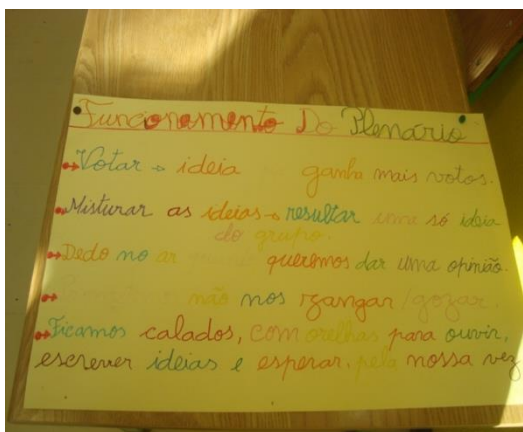 Funcionamento Do Plenário
Votar → ideia ganha mais votos.
Misturar as ideias → resultar uma só ideia
do grupo.
Dedo no ar queremos dar uma opinião.
não nos zangar/gozar.
Ficamos calados, com orelhas para ouvir,
escrever ideias e esperar pela nossa vez